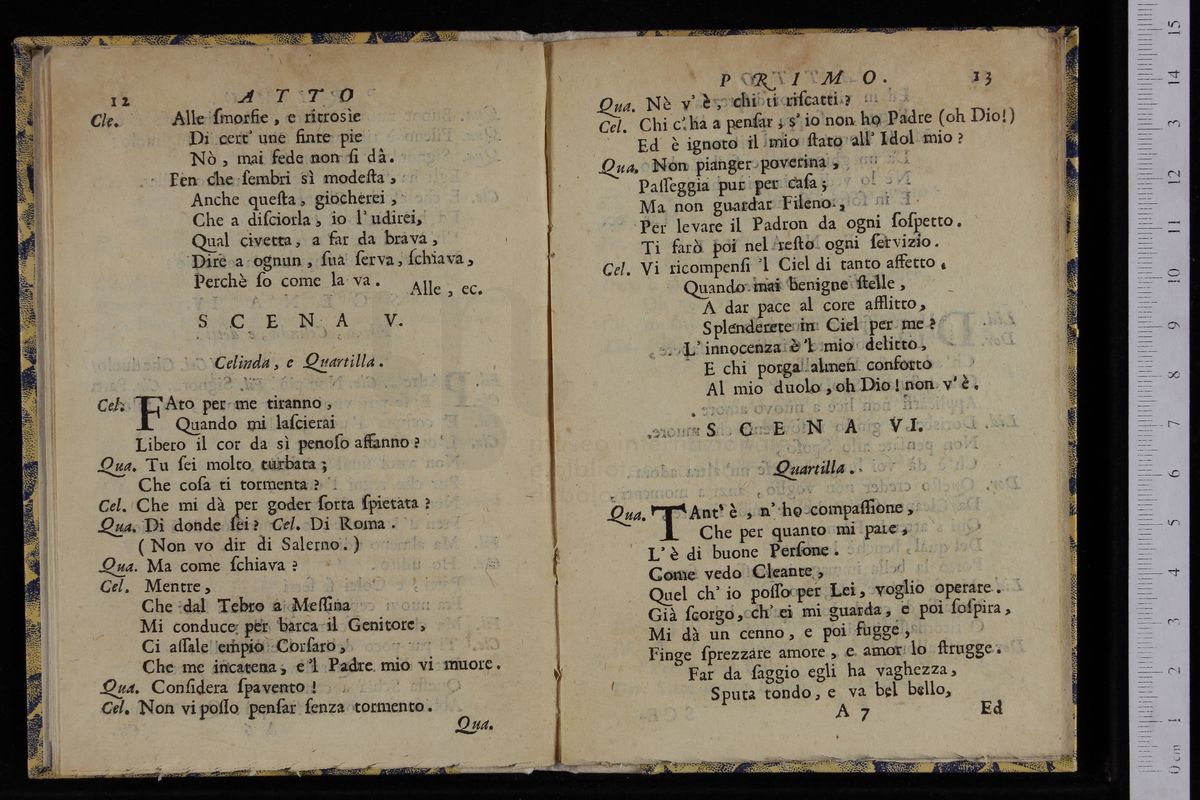 12 ATTO
Cle. Alle ſmorfie, e ritrosìe
Di cert' une finte pie
Nò, mai fede non ſi dà.
Fen che ſembri sì modeſta,
Anche queſta, giocherei,
Che a diſciorla, io l'udirei,
Qual civetta, a far da brava,
Dire a ognun, ſua ſerva, ſchiava,
Perchè ſo come la va.
Alle, ec.
SCENA V.
Celinda, e Quartilla.
Cel. FAto per me tiranno,
Quando mi laſcierai
Libero il cor da sì penoſo affanno?
Qua. Tu ſei molto turbata;
Che coſa ti tormenta?
Cel. Che mi dà per goder ſorta ſpietata?
Qua. Di donde ſei? Cel. Di Roma.
(Non vo dir di Salerno.)
Qua. Ma come ſchiava?
Cel. Mentre,
Che dal Tebro a Meſſina
Mi conduce per barca il Genitore,
Ci aſſale empio Corſaro,
Che me incatena, e'l Padre mio vi muore.
Qua. Conſidera ſpavento!
Cel. Non vi poſſo penſar ſenza tormento.
Qua.
PRIMO. 13
Qua. Nè v'è, chi ti riſcatti?
Cel. Chi c'ha a penſar, s'io non ho Padre (oh Dio!)
Ed è ignoto il mio ſtato all' Idol mio?
Qua. Non pianger poverina,
Paſſeggia pur per caſa;
Ma non guardar Fileno,
Per levare il Padron da ogni ſoſpetto.
Ti farò poi nel reſto ogni ſervizio.
Cel. Vi ricompenſi 'l Ciel di tanto affetto.
Quando mai benigne ſtelle,
A dar pace al core afflitto,
Splenderete in Ciel per me?
L'innocenza è'l mio delitto,
E chi porga almen conforto
Al mio duolo, oh Dio! non v'è.
SCENA VI.
Quartilla.
Qua. TAnt'è, n'ho compaſſione,
Che per quanto mi paie,
L'è di buone Perſone.
Come vedo Cleante,
Quel ch'io poſſo per Lei, voglio operare.
Già ſcorgo, ch'ei mi guarda, e poi ſoſpira,
Mi dà un cenno, e poi fugge,
Finge ſprezzare amore, e amor lo ſtrugge.
Far da ſaggio egli ha vaghezza,
Sputa tondo, e va bel bello,
A 7 Ed
0 cm 1 2 3 4 5 6 7 8 9 10 11 12 13 14 15